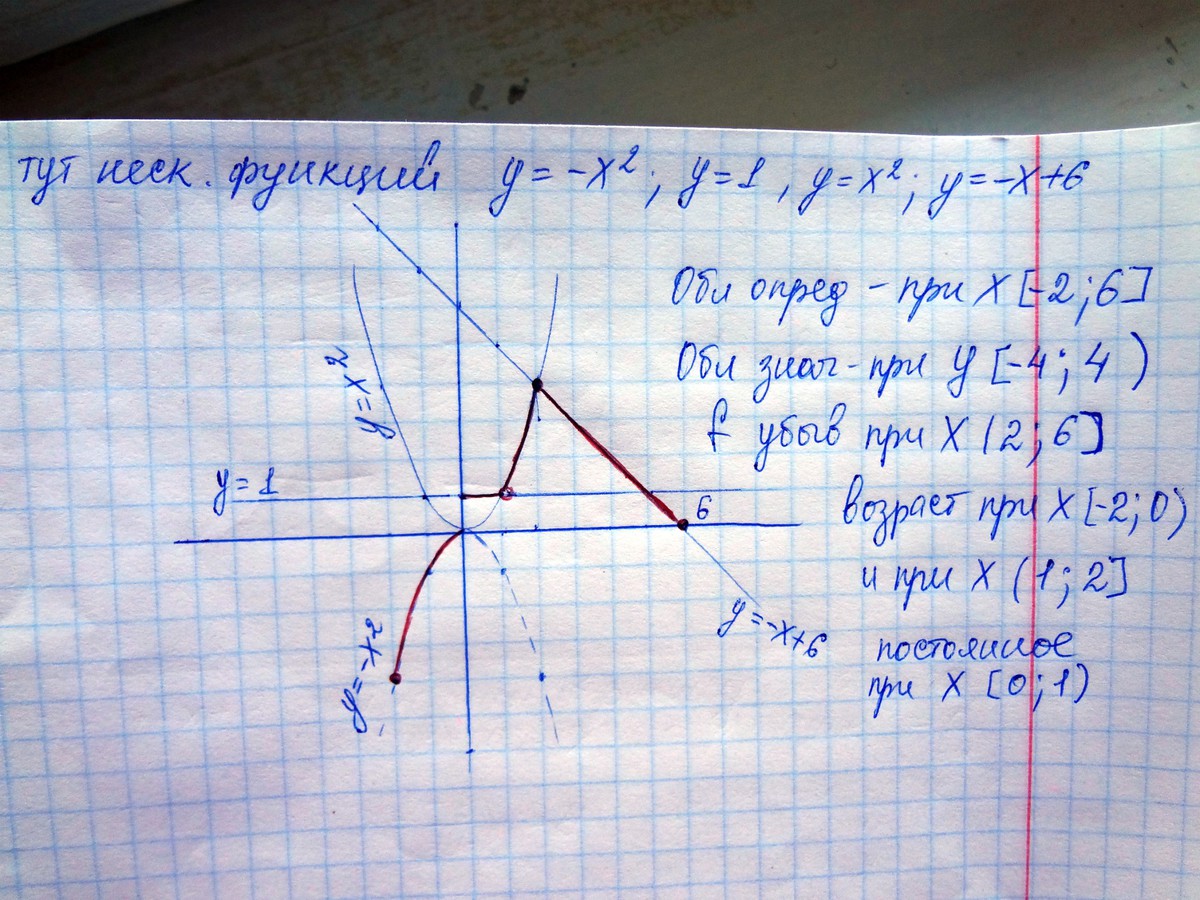 тут неск. функций y = -x²; y=1, y=x²; y=-x+6
Обл опред - при X [-2;6]
y=x²
Обл знач - при y [-4; 4)
f убыв при X (2;6]
y=1
6
возраст при X [-2;0)
и при X (1;2]
y=-x+6
y=-x²
постоянное
при X [0;1)